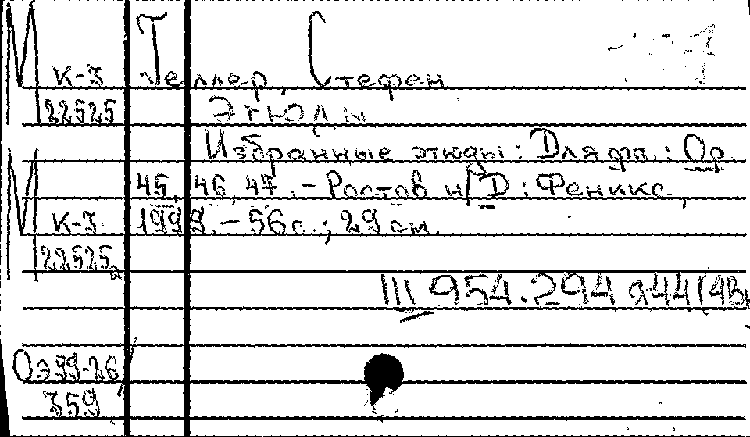 Геллер, Стефен
М К-3
22525 Этюды
Избранные этюды: Для фп.: Ор.
45, 46, 47. - Ростов н/Д: Феникс,
М К-3 1999. - 56 с.; 29 см.
22525а
Ш 954.294 я44(4В
Оэ99-26/
359